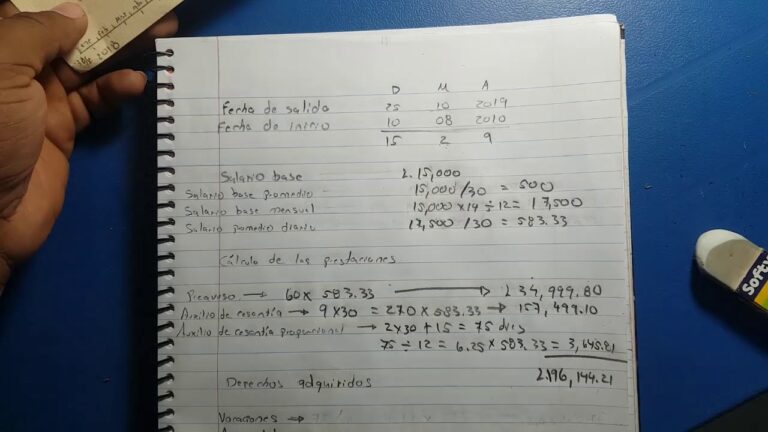 2018
D M A
Fecha de salida 25 10 2019
Fecha de inicio 10 08 2010
15 2 9
Salario base L. 15,000
Salario base promedio 15,000 /30 = 500
Salario base mensual 15,000 x 14 ÷ 12 = 17,500
Salario promedio diario 17,500 /30 = 583.33
Cálculo de las prestaciones
Preaviso → 60 x 583.33 → L 34,999.80
Auxilio de cesantía → 9 x 30 = 270 x 583.33 → 157,499.10
Auxilio de cesantía proporcional → 2x30 + 15 = 75 dias
75 ÷ 12 = 6.25 x 583.33 = 3,645.81
L196,144.21
Derechos adquiridos
Vacaciones →
Softy